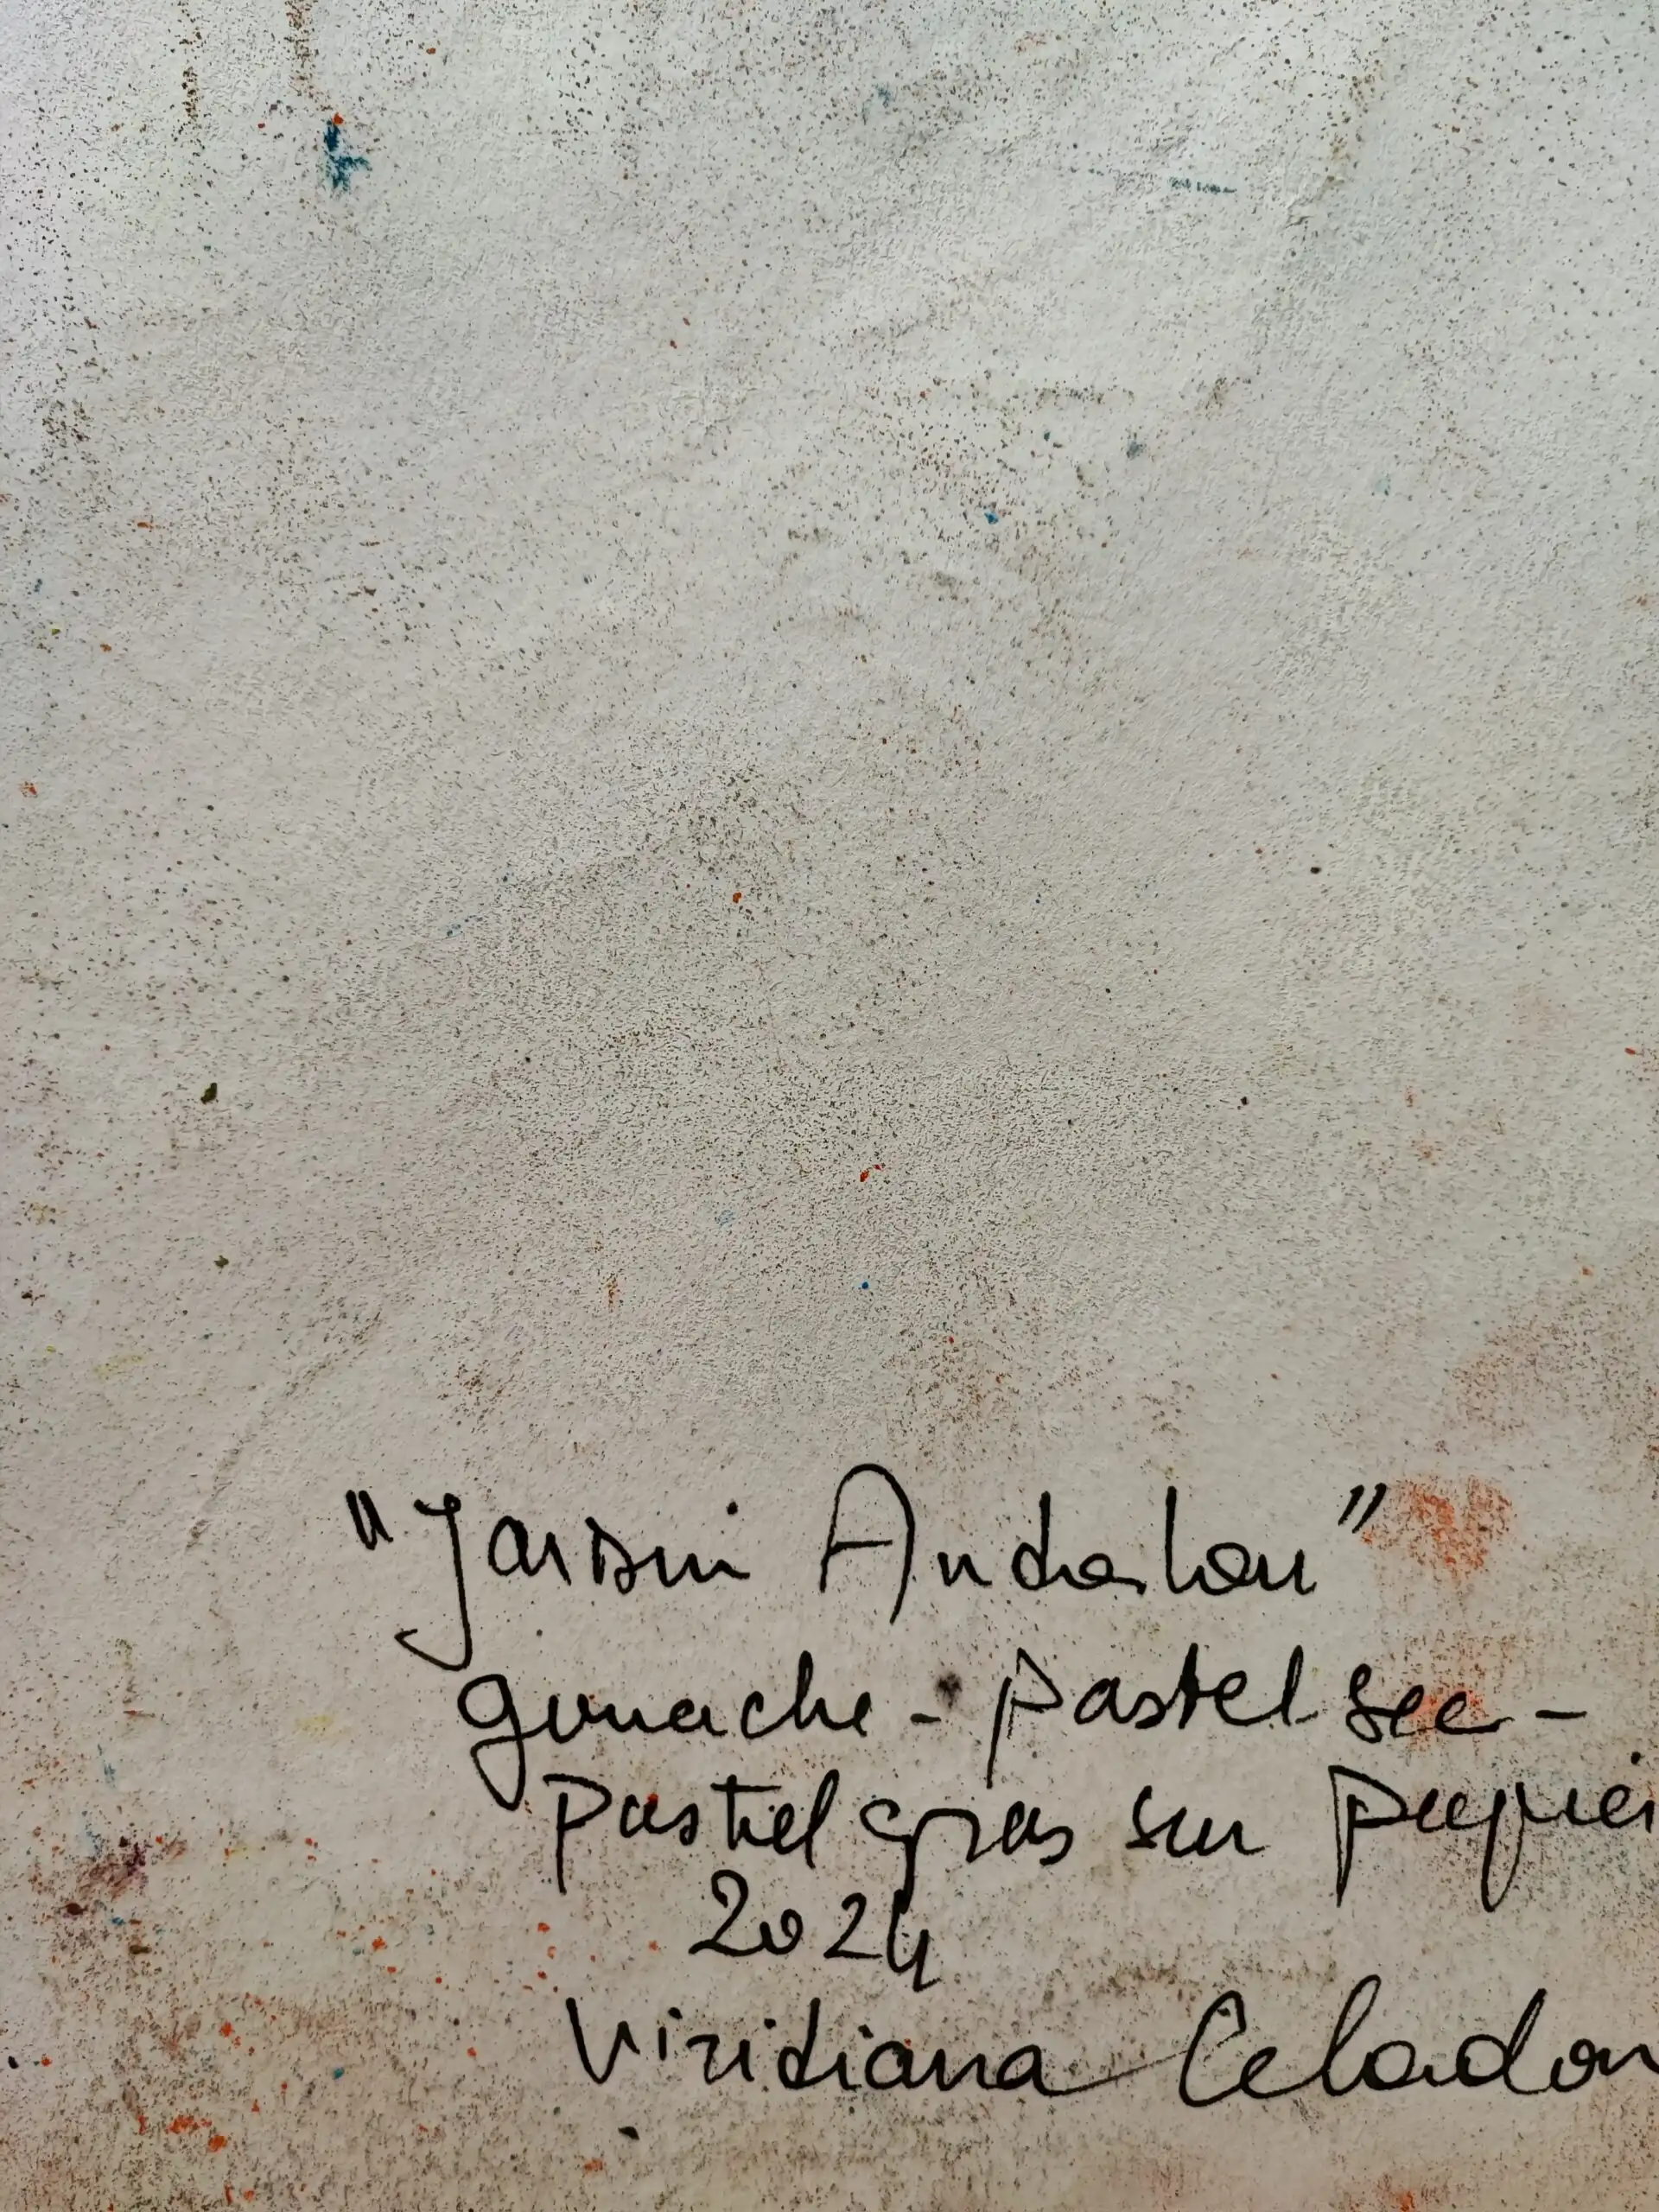 "Jardin Andalou"
gouache - pastel sec -
pastel gras sur papier
2024
Viridiana Celadon